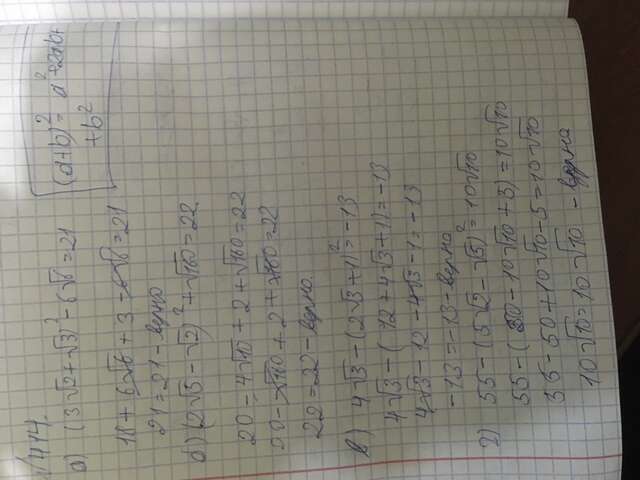 √414.
а) (3√2+√3)² - 6√6 = 21
18 + 6√6 + 3 - 6√6 = 21
21 = 21 - верно
б) (2√5 - √2)² + √160 = 22
20 - 4√10 + 2 + √160 = 22
20 - √160 + 2 + √160 = 22
22 = 22 - верно.
в) 4√3 - (2√3+1)² = -13
4√3 - (12 + 4√3 + 1) = -13
4√3 - 12 - 4√3 - 1 = -13
-13 = -13 - верно
г) 55 - (5√2 - √5)² = 10√10
55 - (50 - 10√10 + 5) = 10√10
55 - 50 + 10√10 - 5 = 10√10
10√10 = 10√10 - верно
(a+b)² = a² + 2ab +
+ b²